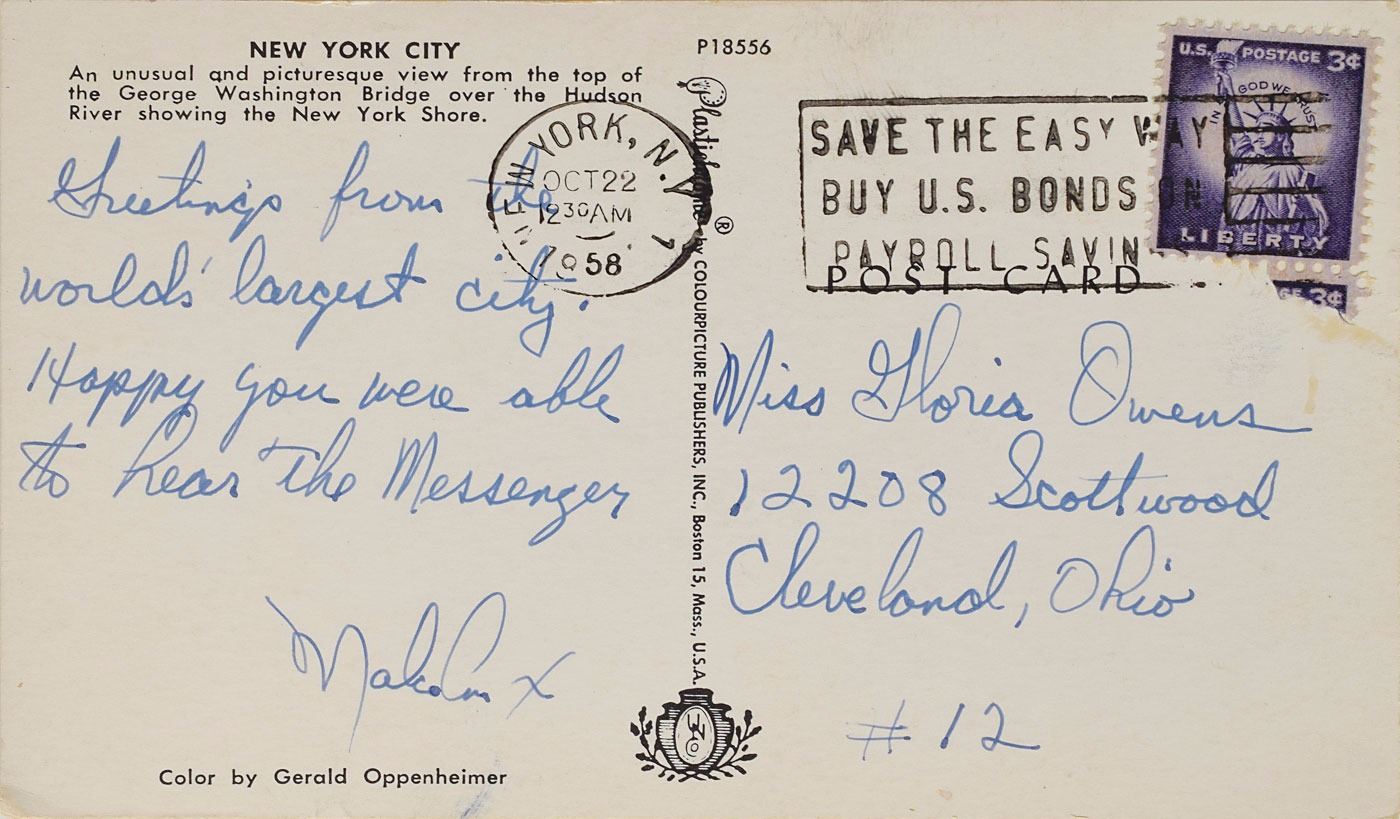 NEW YORK CITY
An unusual and picturesque view from the top of
the George Washington Bridge over the Hudson
River showing the New York Shore.
Greetings from the
world's largest city.
Happy you were able
to hear the Messenger
Malcolm X
Color by Gerald Oppenheimer
P18556
Plastichrome ® by COLOURPICTURE PUBLISHERS, INC., Boston 15, Mass., U.S.A.
NEW YORK, N.Y.
OCT 22
12 30 AM
1958
SAVE THE EASY WAY
BUY U.S. BONDS ON
PAYROLL SAVIN
POST CARD
U.S. POSTAGE 3¢
IN GOD WE TRUST
LIBERTY
GE 3¢
Miss Gloria Owens
12208 Scottwood
Cleveland, Ohio
# 12